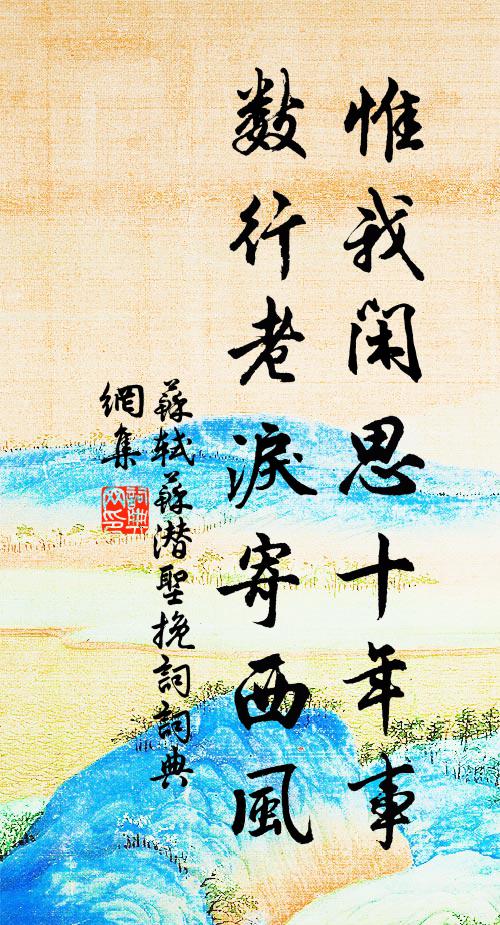 惟我闲思十年事
数行老淚寄西風
蘇軾蘇潜聖挽詞詞典
網集
詞典
网印